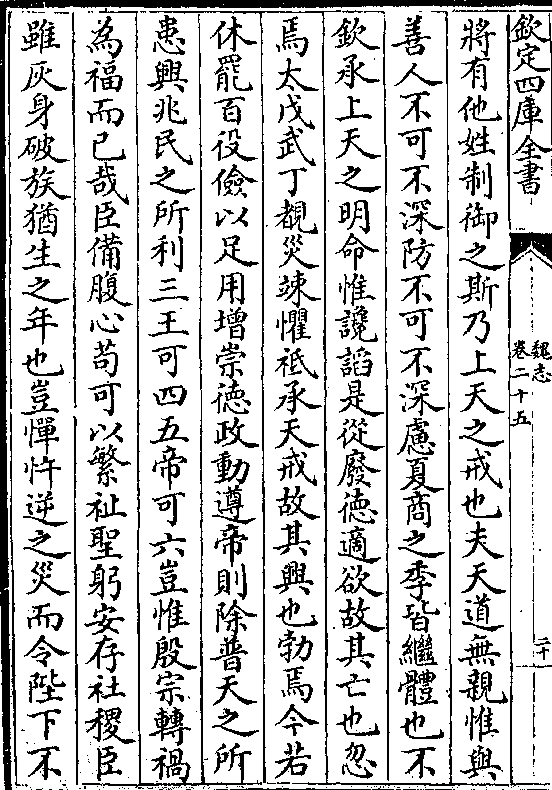 欽定四庫全書
魏志
卷二十五
二十
將有他姓制御之斯乃上天之戒也夫天道無親惟與
善人不可不深防不可不深慮夏商之季皆繼體也不
欽承上天之明命惟讒諂是從廢德適欲故其亡也忽
焉太戊武丁覩災竦懼祗承天戒故其興也勃焉今若
休罷百役儉以足用增崇德政動遵帝則除普天之所
患興兆民之所利三王可四五帝可六豈惟殷宗轉禍
為福而已哉臣備腹心苟可以繁祉聖躬安存社稷臣
雖灰身破族猶生之年也豈憚忤逆之災而令陛下不